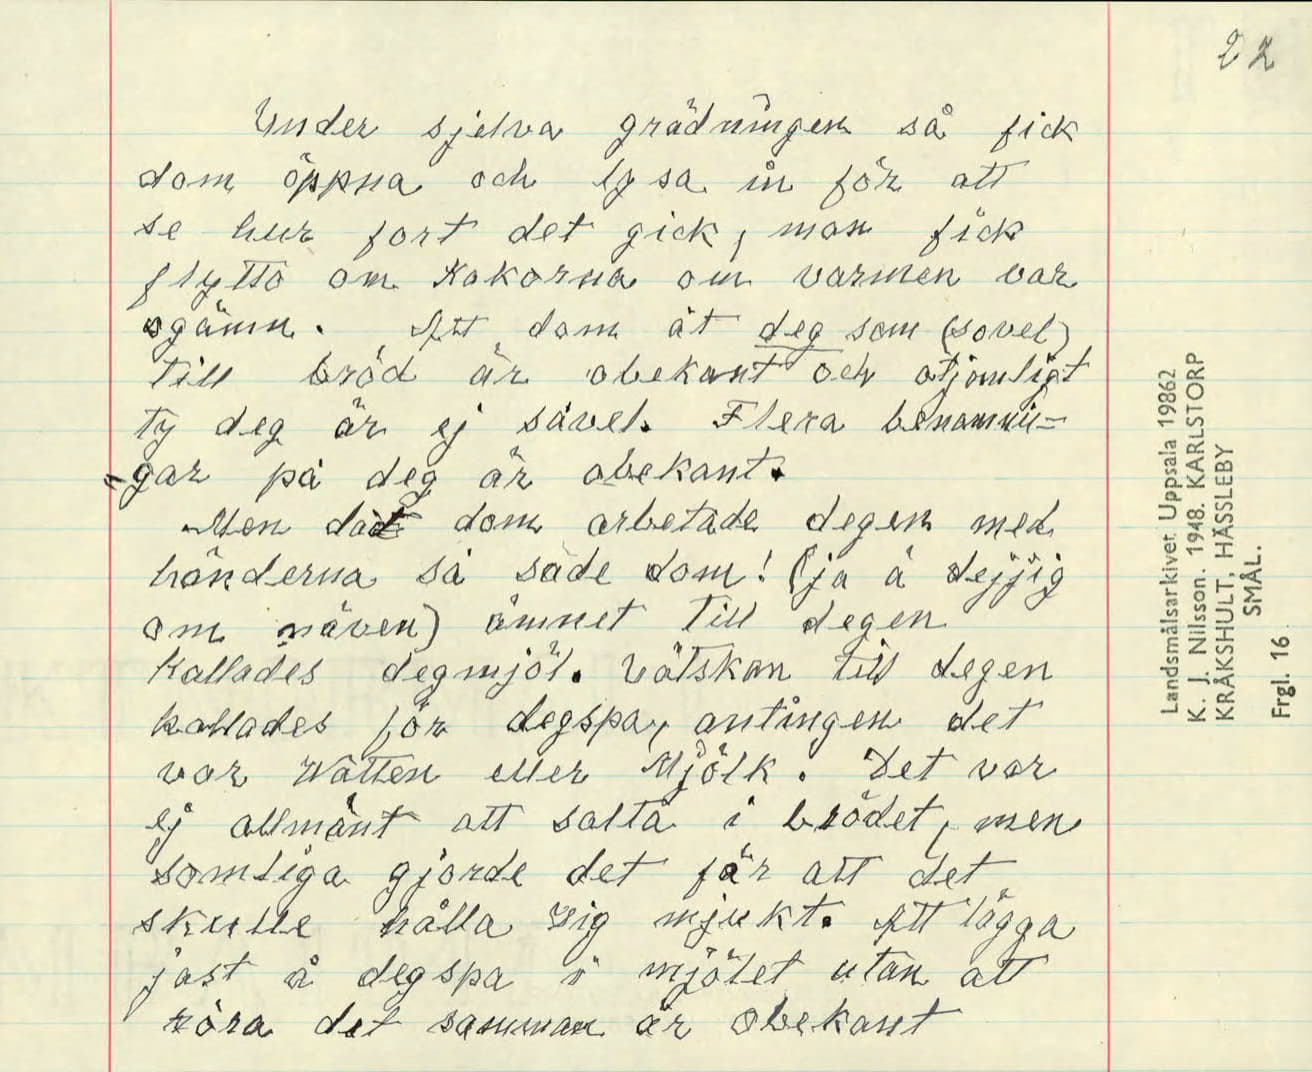 22
Under sjelva grädningen så fick
dom öppna och lysa in för att
se hur fort det gick, man fick
flytta om Kakorna om varmen var
ogämn. Att dom åt deg som (sovel)
till bröd är obekant och otjomligt
ty deg är ej såvel. Flera benämnin-
gar på deg är obekant.
Men då dom arbetade degen med
händerna så säde dom! (ja ä dejjig
om näven) ämnet till degen
kallades degmjöl. Vätskan till degen
kallades för degspa, antingen det
var Watten eller Mjölk. Det var
ej allmänt att salta i brödet, men
somliga gjorde det får att det
skulle hålla sig mjukt. Att lägga
jäst å degspa i mjölet utan att
röra det samman är obekant
Landsmålsarkivet Uppsala 19862
K. J. Nilsson. 1948. KARLSTORP
KRÅKSHULT. HÄSSLEBY
SMÅL.
Frgl. 16